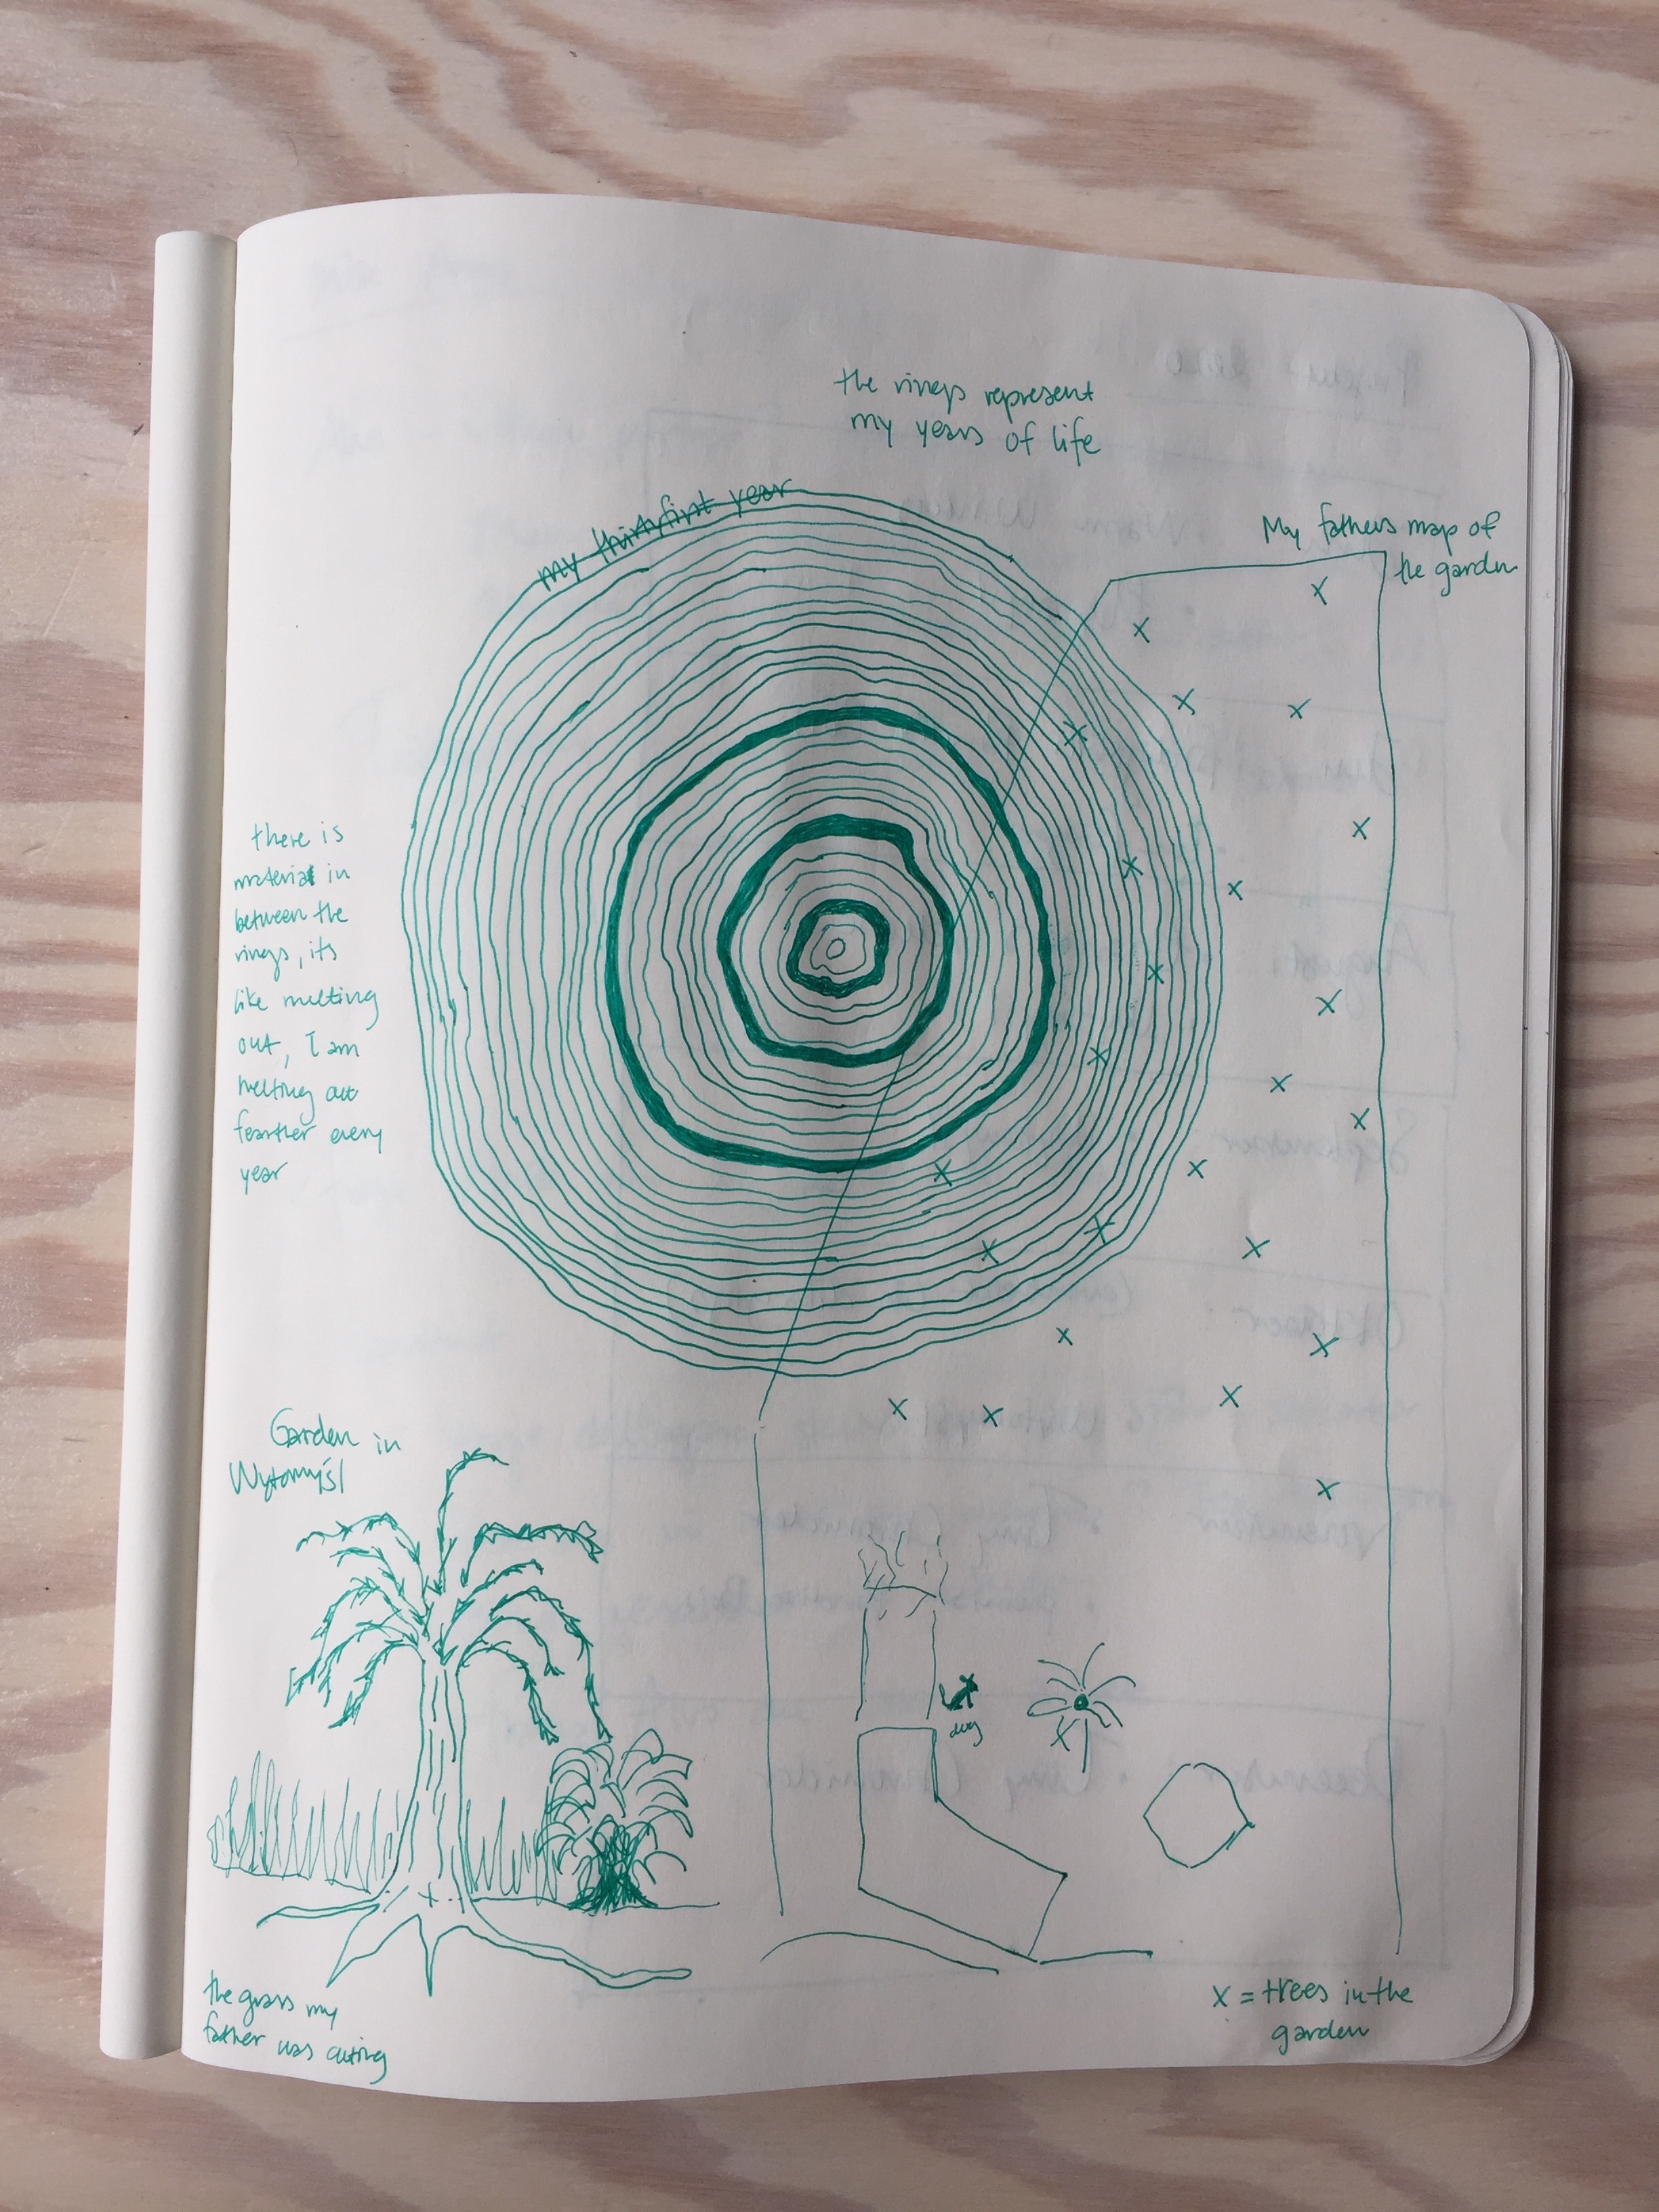 the rings represent
my years of life
my thirtyfirst year
My fathers map of
the garden
there is
material in
between the
rings, its
like melting
out, I am
melting out
fearther every
year
Garden in
Wytomyśl
dog
the grass my
father was cuting
x = trees in the
garden